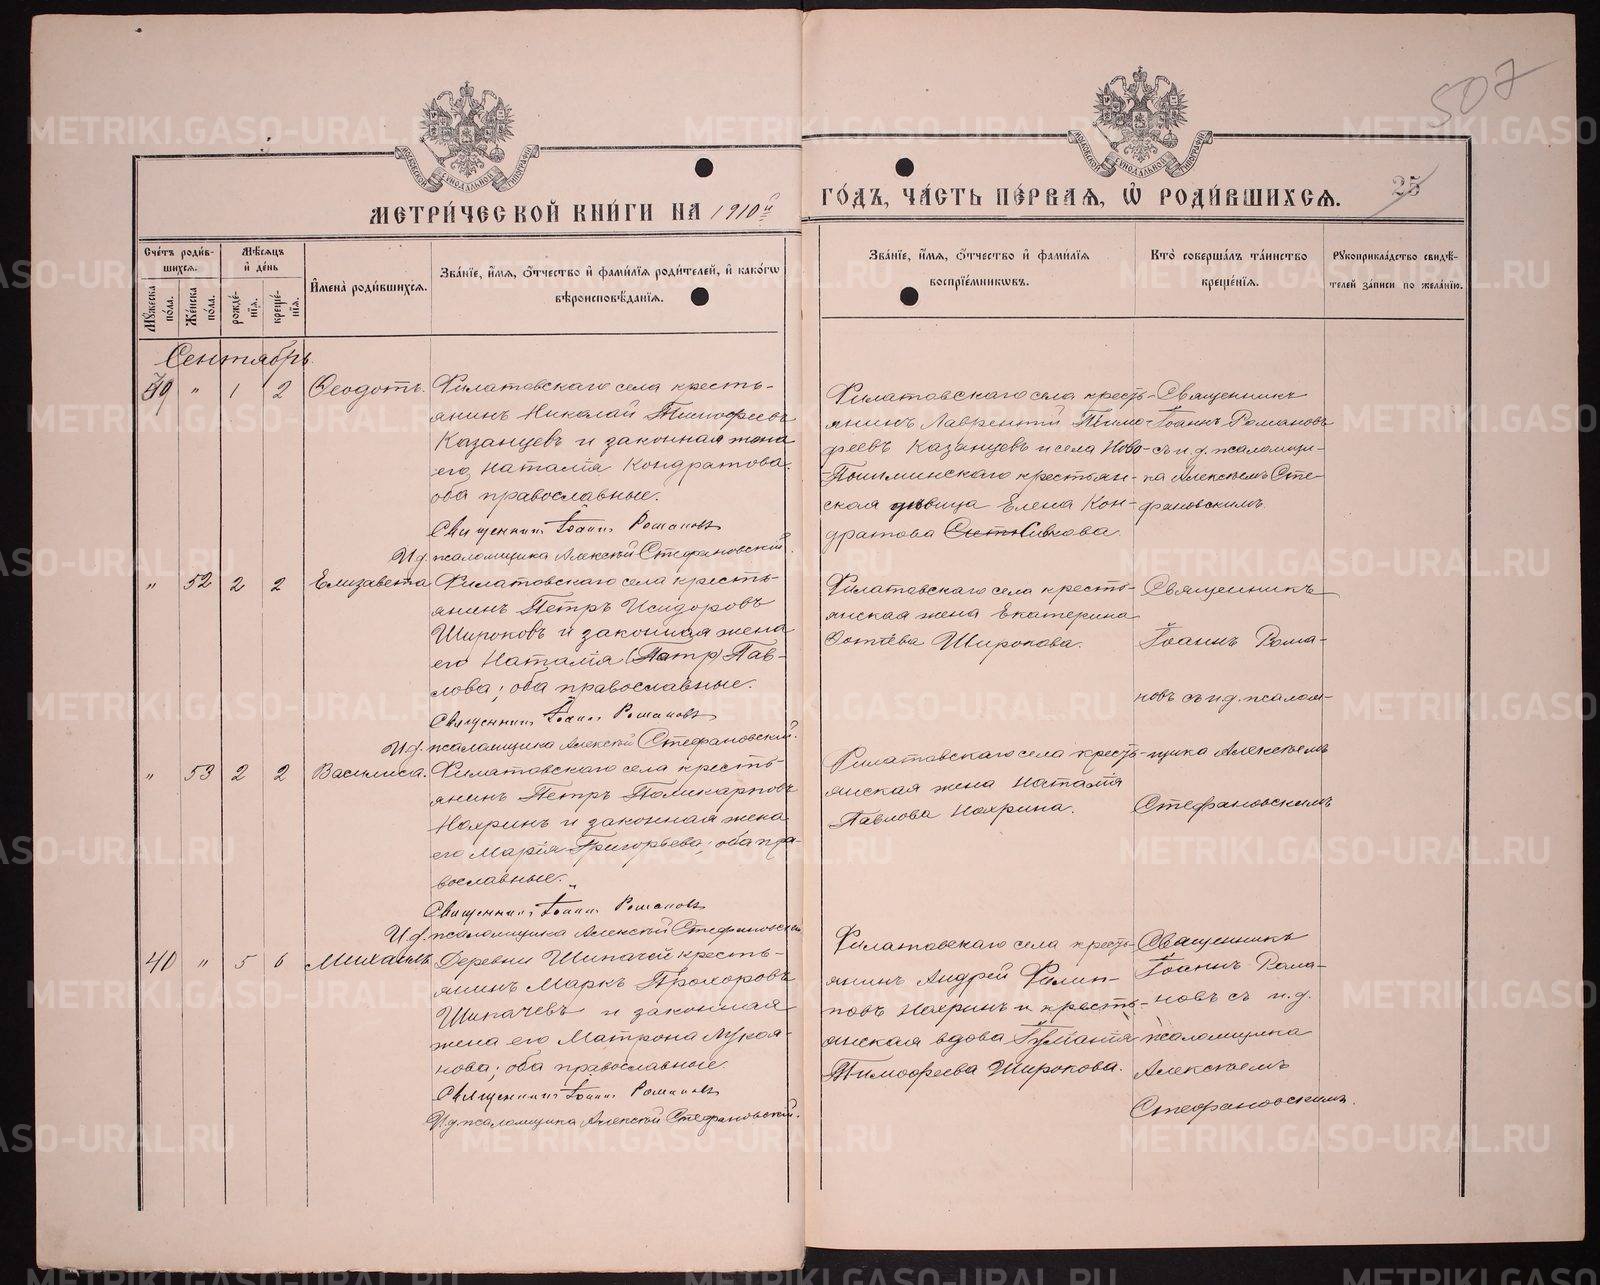 507
МОСКОВСКОЙ СѴНОДАЛЬНОЙ ТИПОГРАФІИ
МОСКОВСКОЙ СѴНОДАЛЬНОЙ ТИПОГРАФІИ
МЕТРИ́ЧЕСКОЙ КНИ́ГИ НА 1910й
ГО́ДЪ, ЧА́СТЬ ПЕ́РВАЯ, Ѡ҆ РОДИ́ВШИХСЯ. 25
Сче́тъ роди́вшихся.
Мꙋ́жеска по́ла.
Же́нска по́ла.
Мѣ́сяцъ и҆ де́нь
рожде́нїя.
креще́нїя.
И҆мена̀ роди́вшихся.
Зва́нїе, и҆́мя, ѻ҆́тчество и҆ фами́лїя роди́телей, и҆ како́гѡ
вѣроисповѣ́данїя.
Зва́нїе, и҆́мя, ѻ҆́тчество и҆ фами́лїя
воспрїе́мникѡвъ.
Кто̀ соверша́лъ та́инство
креще́нїя.
Рꙋкоприкла́дство свидѣ́-
телей за́писи по жела́нїю.
Сентябрь.
39 " 1 2 Ѳеодотъ. Филатовскаго села кресть-
янинъ Николай Тимоѳеевъ
Казанцевъ и законная жена
его Наталія Кондратова.
оба православные.
Священникъ Іоаннъ Романовъ
И.д. псаломщика Алексѣй Стефановскій.
Филатовскаго села кресть-
янинъ Лаврентій Тимо-
феевъ Казанцевъ и села Ново-
Пышминскаго крестьян-
ская дѣвица Елена Кон-
дратова Сивкова.
Священникъ
Іоаннъ Романовъ
съ и.д. псаломщи-
ка Алексѣемъ Сте-
фановскимъ.
" 52 2 2 Елизавета Филатовскаго села кресть-
янинъ Петръ Исидоровъ
Широковъ и законная жена
его Наталія (Петр) Пав-
лова; оба православные.
Священникъ Іоаннъ Романовъ
И.д. псаломщика Алексѣй Стефановскій.
Филатовскаго села кресть-
янская жена Екатерина
Фотіева Широкова.
Священникъ
Іоаннъ Рома-
новъ съ и.д. псалом-
" 53 2 2 Василиса. Филатовскаго села кресть-
янинъ Петръ Поликарповъ
Нохринъ и законная жена
его Марія Григорьева; оба пра-
вославные.
Священникъ Іоаннъ Романовъ
И.д. псаломщика Алексѣй Стефановскій
Филатовскаго села кресть-
янская жена Наталія
Павлова Нохрина.
щика Алексѣемъ
Стефановскимъ
40 " 5 6 Михаилъ Деревни Шипачей кресть-
янинъ Маркъ Прохоровъ
Шипачевъ и законная
жена его Матрона Лукоя-
нова; оба православные.
Священникъ Іоаннъ Романовъ
И.д. псаломщика Алексѣй Стефановскій.
Филатовскаго села кресть-
янинъ Андрей Филип-
повъ Нохринъ и кресть-
янская вдова Іуліанія
Тимоѳеева Широкова.
Священникъ
Іоаннъ Рома-
новъ съ и.д.
псаломщика
Алексѣемъ
Стефановскимъ.
METRIKI.GASO-URAL.RU